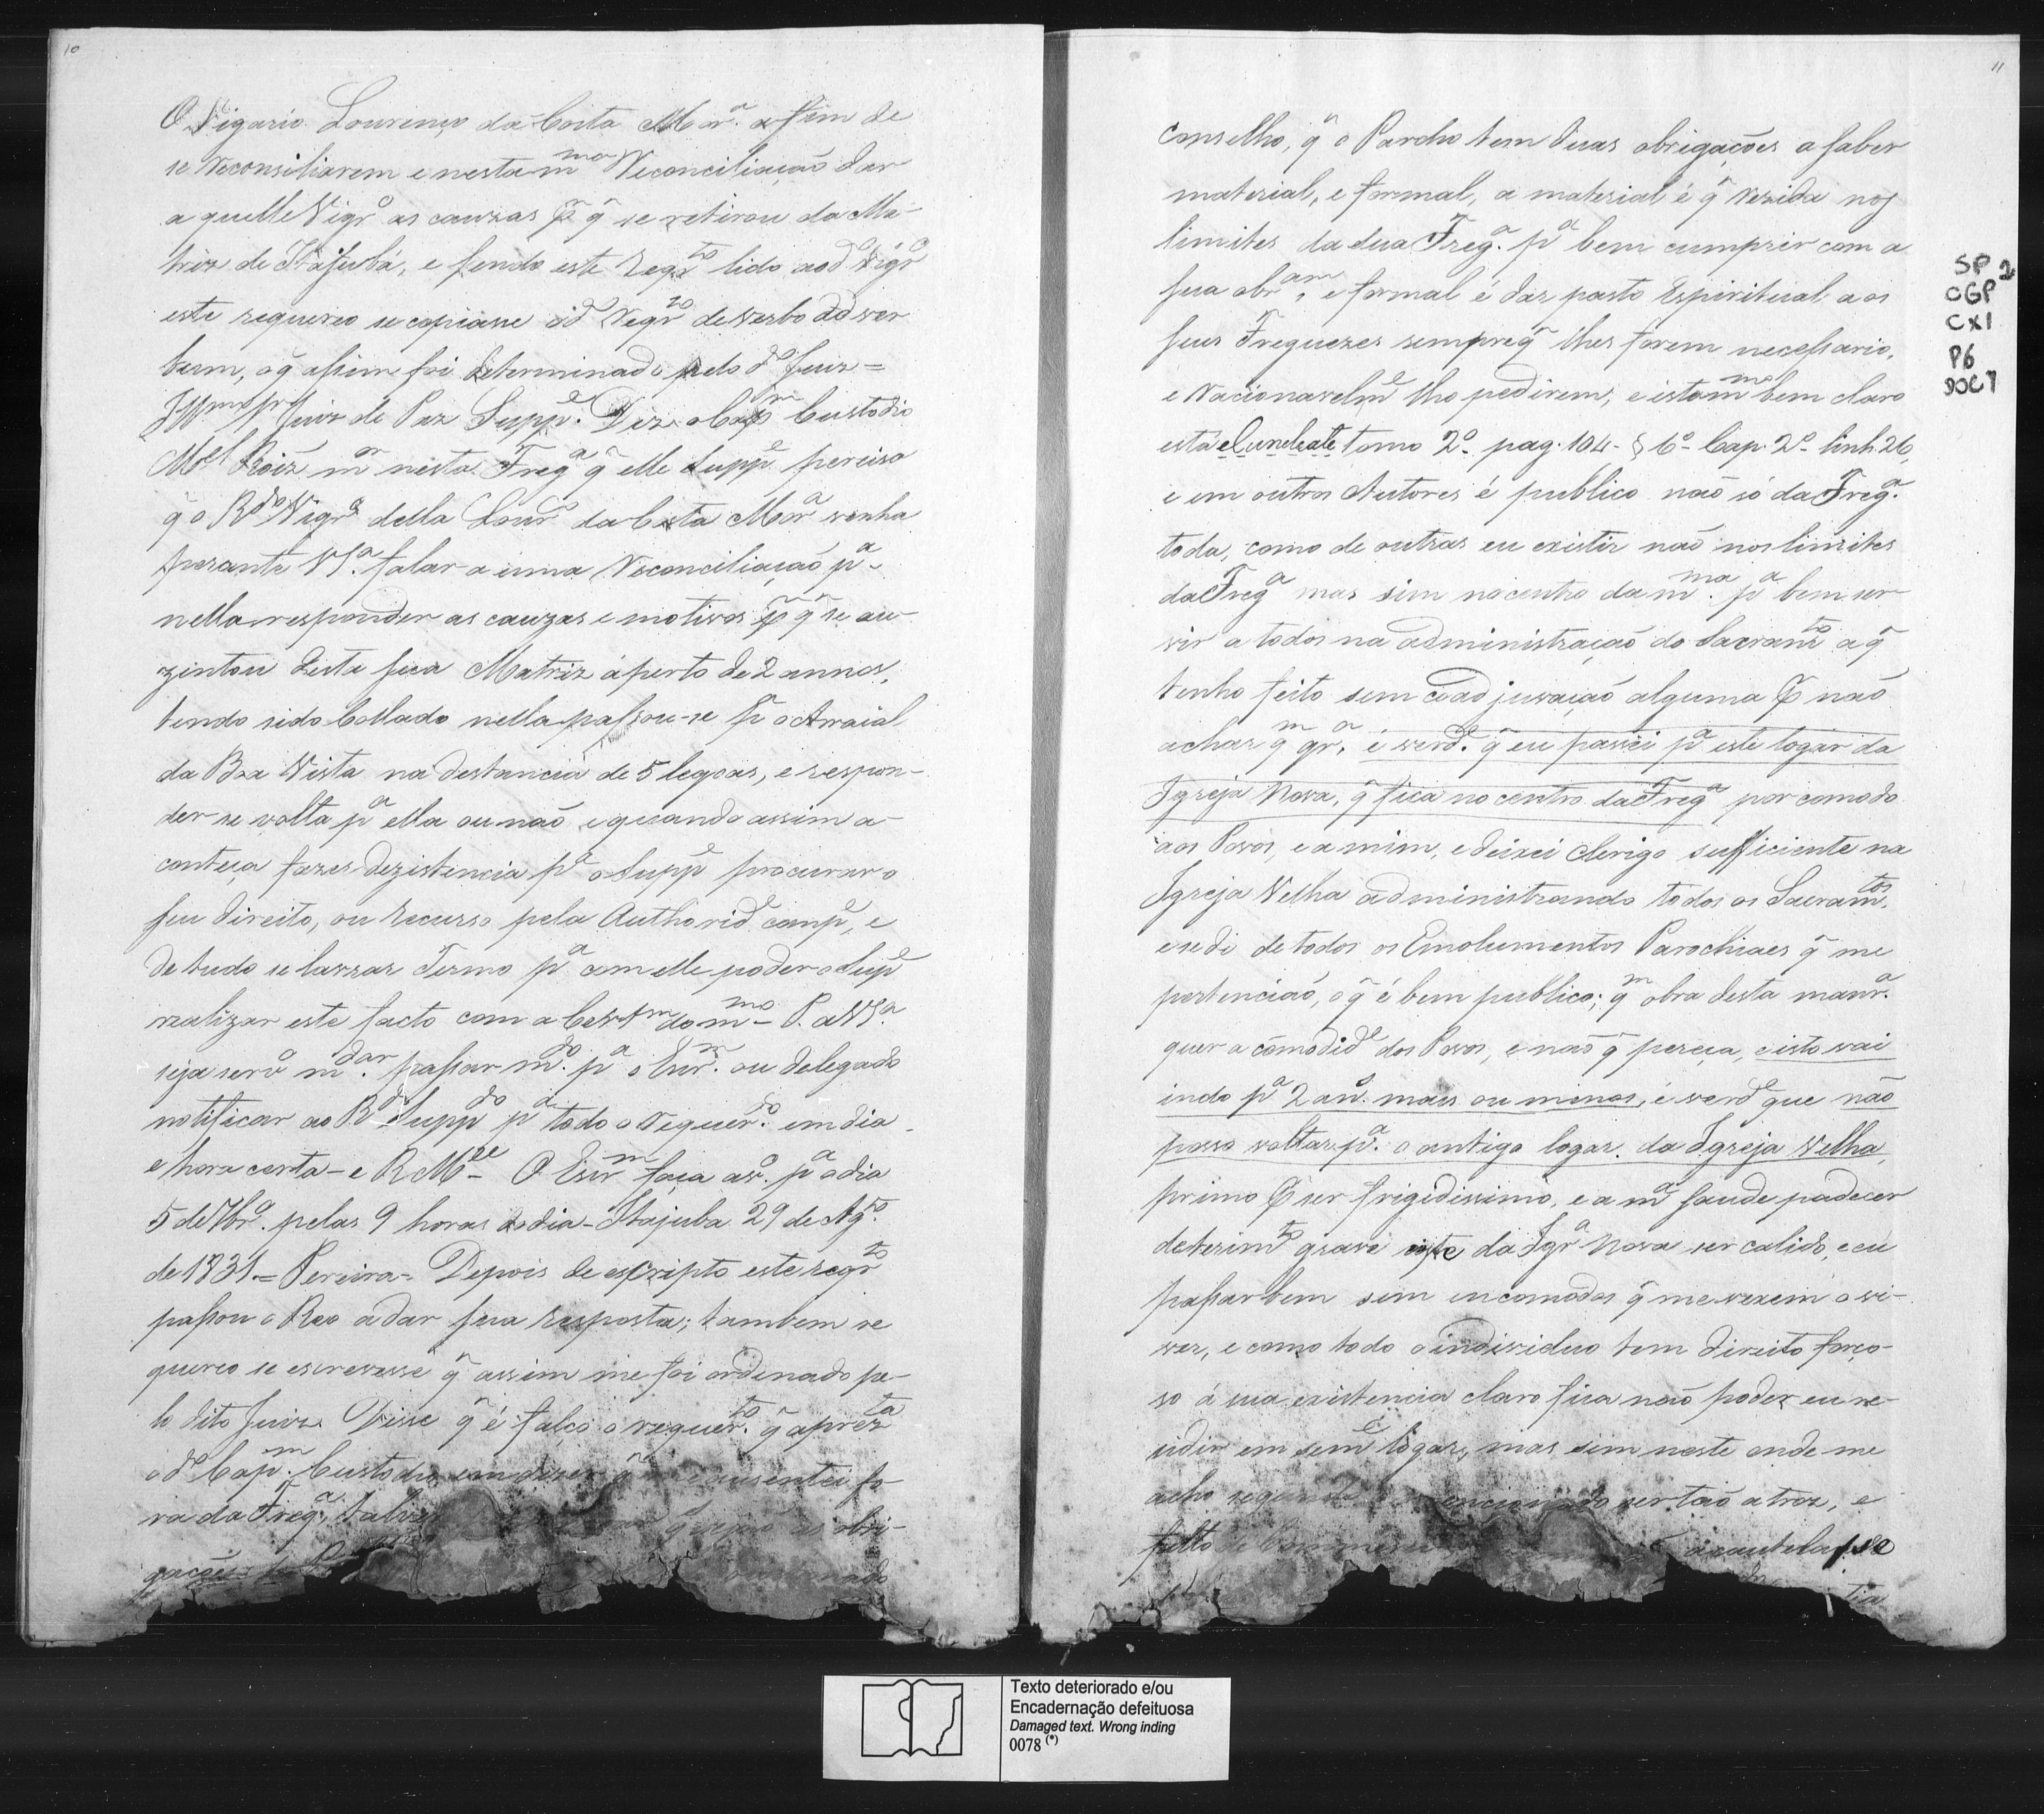 10
O Vigario Lourenço da Costa Mor.ª a fim de
se reconsiliarem e nesta m.ma Reconciliação dar
a quelle Vigr.º as cauzas p.r q̃ se retirou da Ma-
triz de Itajubá, e sendo este reqr.to lido ao d.º Vigr.º
este requereo se copiasse o d.º reqr.to de verbo ad ver
bum, o q̃ assim foi determinado pelo d.º Juiz =
Juiz de Paz Supp.e Diz o Cap.m Custodio
M.el Roiz m.or nesta Freg.ª q̃ elle Supp.e percisa
q̃ o R.do Vigr.º della Lour.ço da Costa Mor.ª venha
perante V S.ª falar a uma Reconciliação p.ª
nella responder as cauzas e motivos p.r q̃ se au-
zentou desta sua Matriz á perto de 2 annos,
tendo sido Collado nella passou-se p.ª o Arraial
da Boa Vista na destancia de 5 legoas, e respon-
der se volta p.ª ella ou não e quando assim a-
conteça fazer dezistencia p.ª o Supp.e procurar o
seu direito, ou recurso pela Authorid.e comp.e, e
de tudo se lavrar Termo p.ª com elle poder o Sup.e
realizar este facto com a Cert.m do m.mo - P. a V S.ª
seja serv.º m.dar passar m.do p.ª o Escr.m ou delegado
notificar ao R.do Supp.do p.ª todo o requer.do em dia
e hora certa - e R M.ce - O Escr.m faça av.º p.ª o dia
5 de 7br.º pelas 9 horas do dia - Itajuba 29 de Ag.to
de 1831 = Pereira - Depois de escripto este reqr.to
passou o Reo a dar sua resposta; tambem re
quereo se escrevesse q̃ assim me foi ordenado pe-
lo dito Juiz. Disse q̃ é falço o requer.to q̃ aprez.ta
o d.º Cap.m Custodio em dizer q̃ me ausentei fo-
ra da Freg.ª, talvez q̃ sejão as obri-
gações
11
conselho, q̃ o Parcho tem duas obrigações a saber
material, e formal, a material é q̃ rezida nos
limites da sua Freg.ª p.ª bem cumprir com a
sua obr.am, e formal é dar pasto Espiritual aos
seus Freguezes sempre q̃ lhes forem necessario,
e racionavelm.e lho pedirem, e isto m.mo bem claro
está tomo 2º pag. 104 - § 6º - Cap. 2º - linh. 26,
e em outros Autores é publico não só da Freg.ª
toda, como de outras eu existir não nos limites
da Freg.ª mas sim no centro da m.ma p.ª bem ser
vir a todos na administração do Sacram.to a q̃
tenho feito sem coadjuvação alguma p.r não
achar q.m qr.ª, é verd.e q̃ eu passei p.ª este logar da
Igreja Nova, q̃ fica no centro da Freg.ª por comodo
aos Povos, e a mim, e deixei clerigo sufficiente na
Igreja Velha administrando todos os Sacram.tos
e sedi de todos os Emolumentos Parochiaes q̃ me
pertencião, o q̃ é bem publico; q.m obra desta manr.ª
quer a cõmodid.e dos Povos, e não q̃ pereça, e isto vai
indo p.ª 2 an.s mais ou menos, é verd.e que não
posso voltar p.ª o antigo logar da Igreja Velha,
primo p.r ser frigidissimo, e a m.ª saude padecer
deterim.to grave este da Igr.ª Nova ser calido, e eu
passar bem sem encomodos q̃ me vexem o vi-
ver, e como todo o individuo tem direito forço-
so á sua existencia claro fica não poder eu re-
zidir em sem.e logar, mas sim neste onde me
acho segundo ser tão atroz, e
falto de acautelasse
SP 2
CGP
CX1
P6
DOC7
Texto deteriorado e/ou
Encadernação defeituosa
Damaged text. Wrong inding
0078 (*)